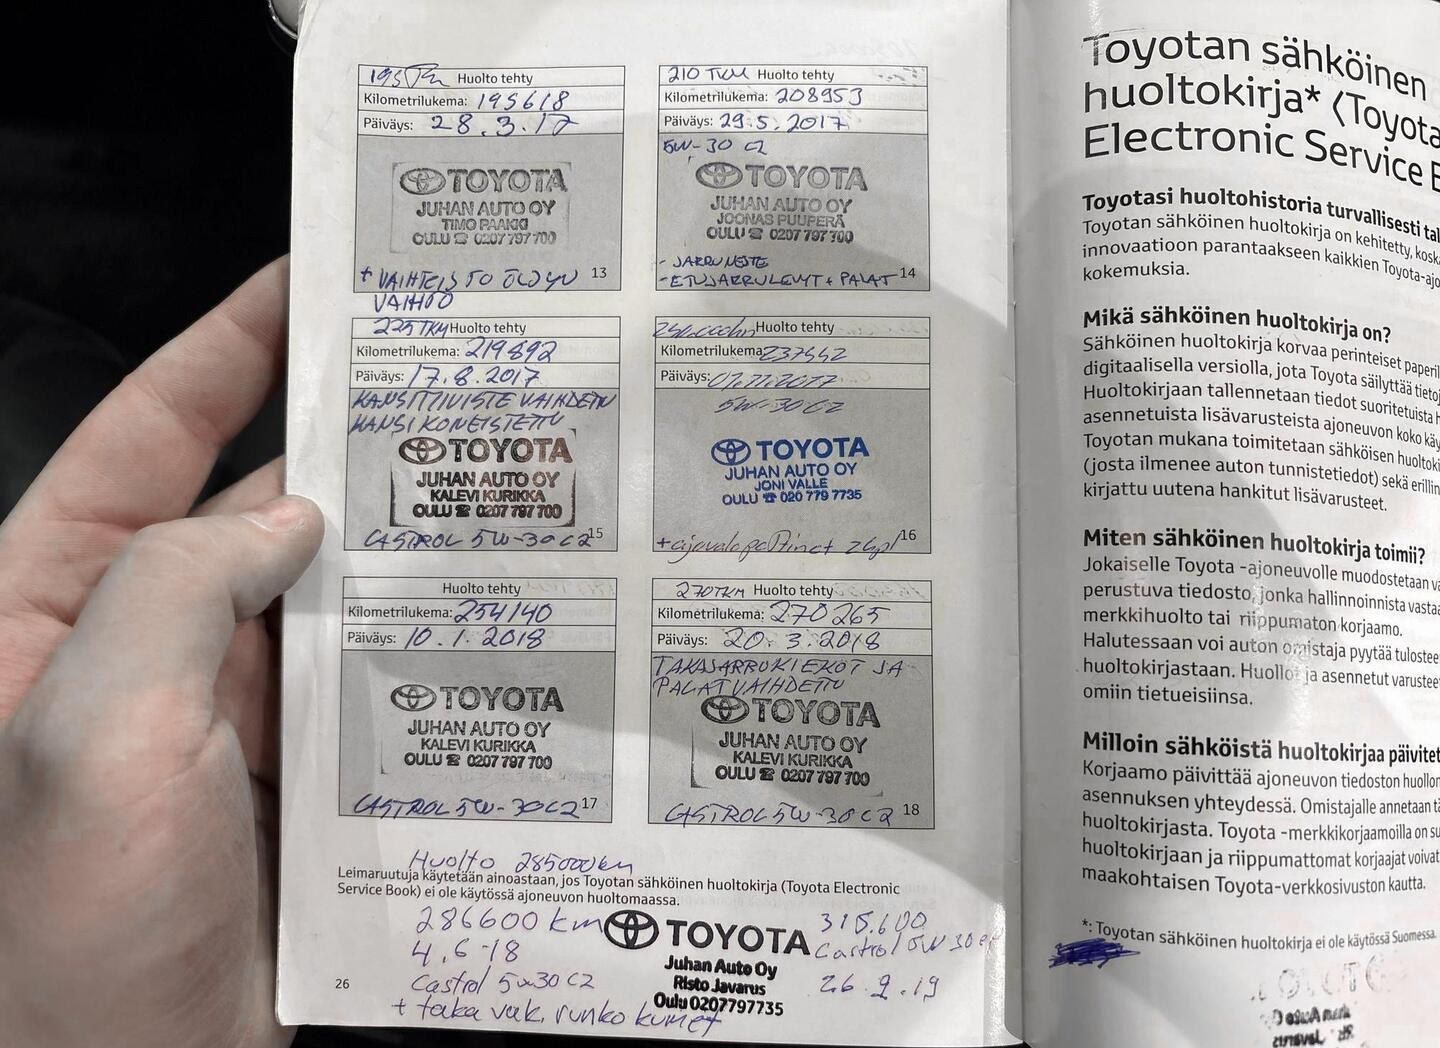 195 Tkm Huolto tehty
Kilometrilukema: 195618
Päiväys: 28.3.17
TOYOTA
JUHAN AUTO OY
TIMO PAAKKI
OULU ☎ 0207 797 700
+ VAIHTEISTO ÖLJYN 13
VAIHTO
210 TKM Huolto tehty
Kilometrilukema: 208953
Päiväys: 29.5.2017
5W-30 C2
TOYOTA
JUHAN AUTO OY
JOONAS PUUPERÄ
OULU ☎ 0207 797 700
- JARRUNESTE
- ETUJARRULEVYT + PALAT 14
225 TKM Huolto tehty
Kilometrilukema: 219892
Päiväys: 17.8.2017
KANSITIIVISTE VAIHDETTU
KANSI KONEISTETTU
TOYOTA
JUHAN AUTO OY
KALEVI KURIKKA
OULU ☎ 0207 797 700
CASTROL 5W-30 C2 15
Huolto tehty
Kilometrilukema 237552
Päiväys: 07.11.2017
5W-30 C2
TOYOTA
JUHAN AUTO OY
JONI VALLE
OULU ☎ 020 779 7735
+ ajovalopolttimot 2kpl 16
Huolto tehty
Kilometrilukema: 254140
Päiväys: 10.1.2018
TOYOTA
JUHAN AUTO OY
KALEVI KURIKKA
OULU ☎ 0207 797 700
CASTROL 5W-30 C2 17
270TKM Huolto tehty
Kilometrilukema: 270265
Päiväys: 20.3.2018
TAKAJARRUKIEKOT JA
PALAT VAIHDETTU
TOYOTA
JUHAN AUTO OY
KALEVI KURIKKA
OULU ☎ 0207 797 700
CASTROL 5W-30 C2 18
Huolto 285000km
Leimaruutuja käytetään ainoastaan, jos Toyotan sähköinen huoltokirja (Toyota Electronic
Service Book) ei ole käytössä ajoneuvon huoltomaassa.
286600 km
4.6-18
Castrol 5w30 C2
+ taka vak. runko kumet
TOYOTA
Juhan Auto Oy
Risto Javarus
Oulu 0207797735
315.600
Castrol 5W 30
26.2.19
26
Toyotan sähköinen
huoltokirja* (Toyota
Electronic Service B
Toyotasi huoltohistoria turvallisesti tal
Toyotan sähköinen huoltokirja on kehitetty, kosk
innovaatioon parantaakseen kaikkien Toyota-ajo
kokemuksia.
Mikä sähköinen huoltokirja on?
Sähköinen huoltokirja korvaa perinteiset paperil
digitaalisella versiolla, jota Toyota säilyttää tietoj
Huoltokirjaan tallennetaan tiedot suoritetuista h
asennetuista lisävarusteista ajoneuvon koko käy
Toyotan mukana toimitetaan sähköisen huoltoki
(josta ilmenee auton tunnistetiedot) sekä erillin
kirjattu uutena hankitut lisävarusteet.
Miten sähköinen huoltokirja toimii?
Jokaiselle Toyota -ajoneuvolle muodostetaan va
perustuva tiedosto, jonka hallinnoinnista vastaa
merkkihuolto tai riippumaton korjaamo.
Halutessaan voi auton omistaja pyytää tulostee
huoltokirjastaan. Huollot ja asennetut varustee
omiin tietueisiinsa.
Milloin sähköistä huoltokirjaa päivitet
Korjaamo päivittää ajoneuvon tiedoston huollon
asennuksen yhteydessä. Omistajalle annetaan tä
huoltokirjasta. Toyota -merkkikorjaamoilla on su
huoltokirjaan ja riippumattomat korjaajat voivat
maakohtaisen Toyota-verkkosivuston kautta.
*: Toyotan sähköinen huoltokirja ei ole käytössä Suomessa.